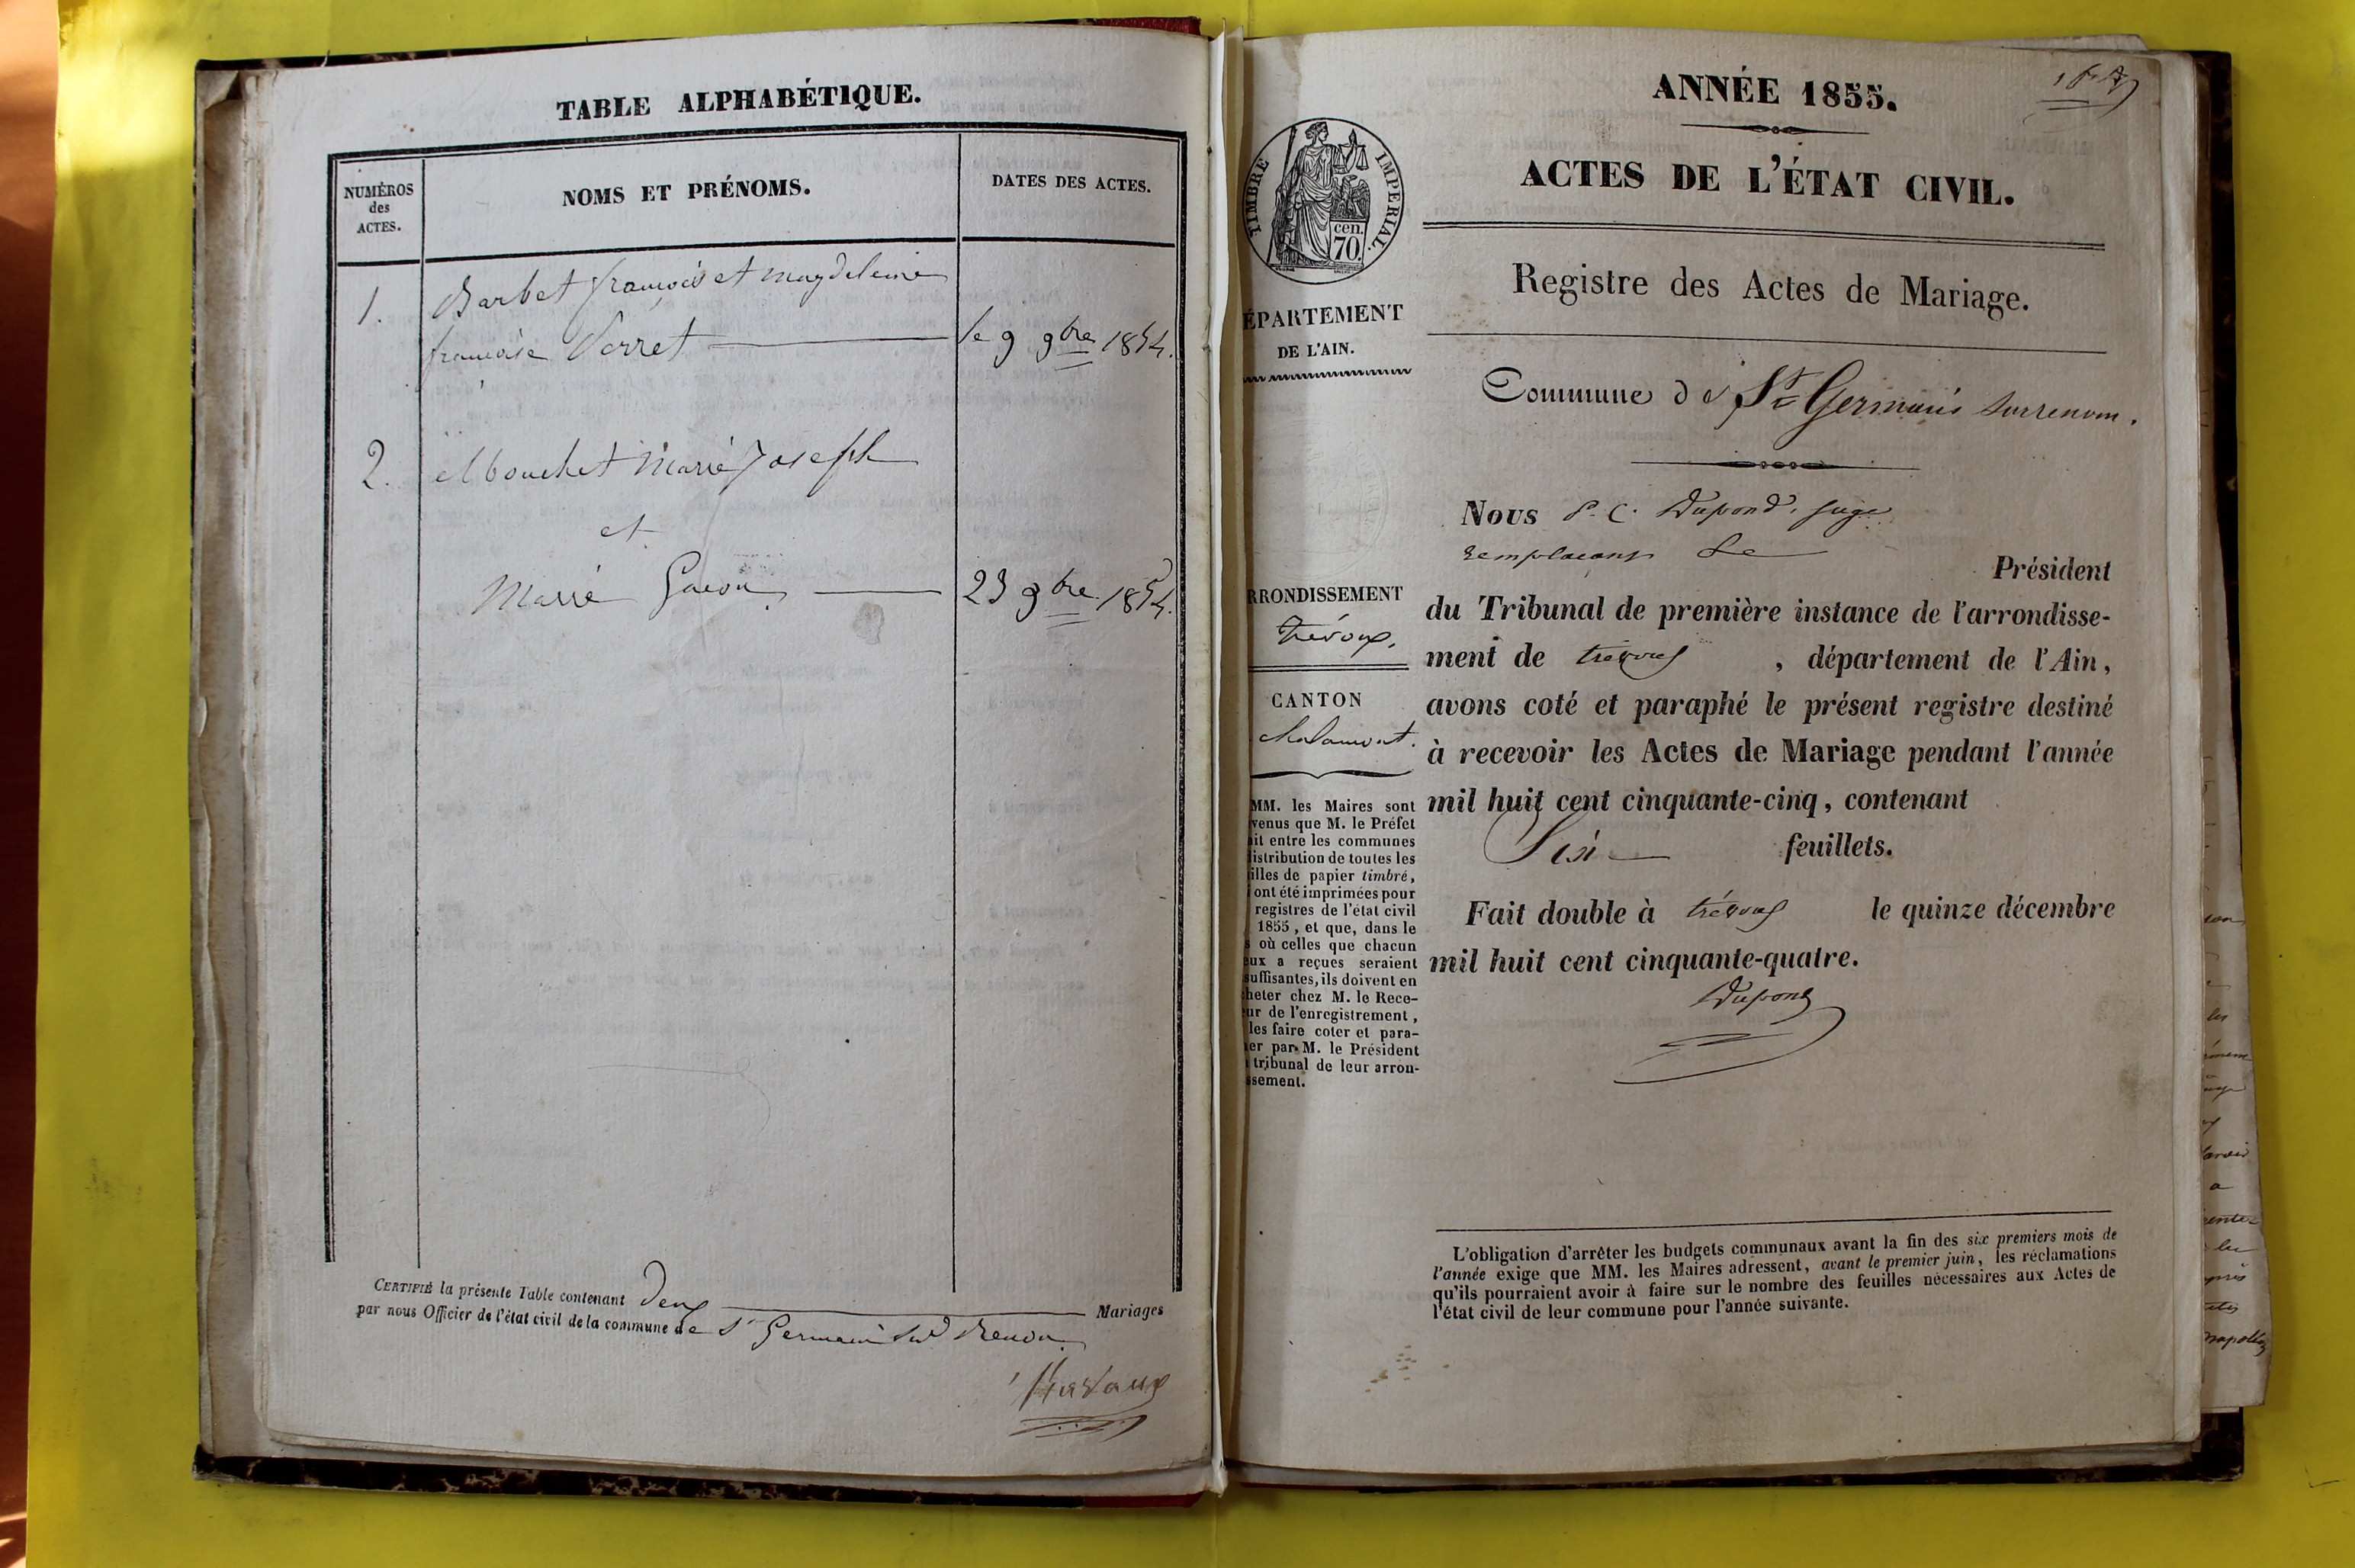 TABLE ALPHABÉTIQUE.
NUMÉROS
des
ACTES.
NOMS ET PRÉNOMS.
DATES DES ACTES.
1. Barbet françois et magdeleine
françoise Perret le 9 9bre 1854.
2. Mouchet Marie Joseph
et
Marie 23 9bre 1854.
CERTIFIÉ la présente Table contenant Deux Mariages
par nous Officier de l'état civil de la commune de St Germain Sur Renon
ANNÉE 1855.
ACTES DE L'ÉTAT CIVIL.
TIMBRE IMPERIAL.
cen.
70.
Registre des Actes de Mariage.
ÉPARTEMENT
DE L'AIN.
Commune de St Germain surrenom.
Nous P. C. Dupond, juge
remplaçant le
Président
RRONDISSEMENT
trévoux.
du Tribunal de première instance de l'arrondisse-
ment de trévoux, département de l'Ain,
CANTON
chalamont.
avons coté et paraphé le présent registre destiné
à recevoir les Actes de Mariage pendant l'année
mil huit cent cinquante-cinq, contenant
Six feuillets.
Fait double à trévoux le quinze décembre
mil huit cent cinquante-quatre.
Dupond
MM. les Maires sont
venus que M. le Préfet
ait entre les communes
istribution de toutes les
illes de papier timbré,
ont été imprimées pour
registres de l'état civil
1855, et que, dans le
s où celles que chacun
eux a reçues seraient
suffisantes, ils doivent en
heter chez M. le Rece-
ur de l'enregistrement,
les faire coter et para-
er par M. le Président
tribunal de leur arron-
ssement.
L'obligation d'arrêter les budgets communaux avant la fin des six premiers mois de
l'année exige que MM. les Maires adressent, avant le premier juin, les réclamations
qu'ils pourraient avoir à faire sur le nombre des feuilles nécessaires aux Actes de
l'état civil de leur commune pour l'année suivante.